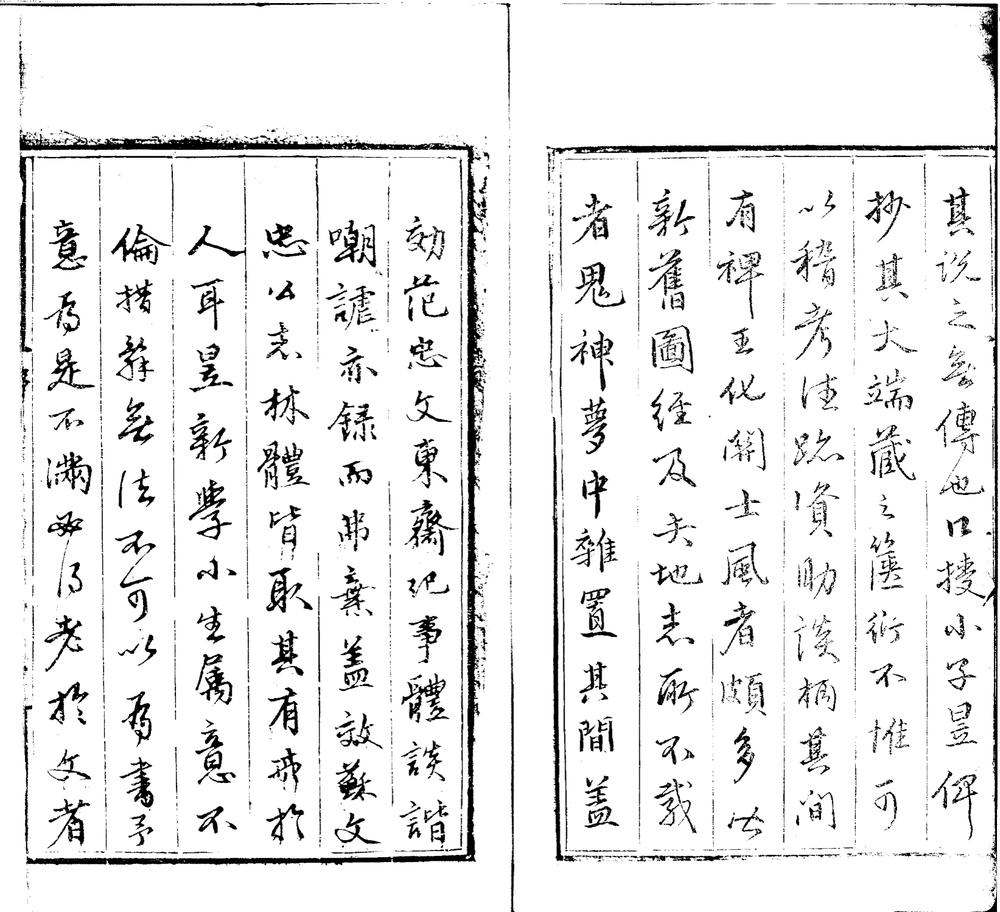 其説之無傳也口授小子昱俾
抄其大端藏之篋衍不惟可
以稽考往跡資助談柄其間
有裨王化関士風者頗多比
新舊圖經及夫地志所不載
者鬼神夢中雜置其間盖
効范忠文東齋紀事體談諧
嘲謔亦録而弗棄盖效蘇文
忠公志林體皆取其有戒於
人耳昱新學小生属意不
倫措辭無法不可以爲書予
意爲是不滿必得老於文者